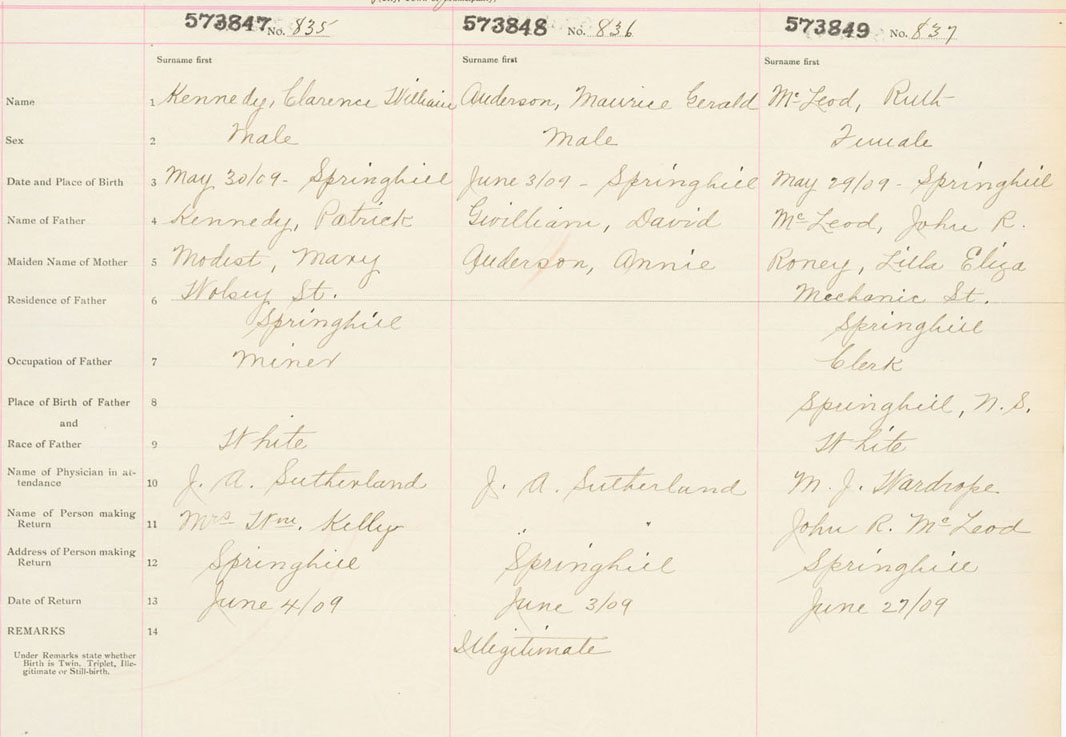 573847 No. 835 573848 No. 836 573849 No. 837
Surname first Surname first Surname first
Name 1 Kennedy, Clarence William Anderson, Maurice Gerald McLeod, Ruth
Sex 2 Male Male Female
Date and Place of Birth 3 May 30/09 - Springhill June 3/09 - Springhill May 29/09 - Springhill
Name of Father 4 Kennedy, Patrick Gwilliam, David McLeod, John R.
Maiden Name of Mother 5 Modest, Mary Anderson, Annie Roney, Lilla Eliza
Residence of Father 6 Wolsey St. Mechanic St.
Springhill Springhill
Occupation of Father 7 Miner Clerk
Place of Birth of Father 8 Springhill, N.S.
and
Race of Father 9 White White
Name of Physician in at-
tendance 10 J. A. Sutherland J. A. Sutherland M. J. Wardrope
Name of Person making
Return 11 Mrs Wm. Kelly " " John R. McLeod
Address of Person making
Return 12 Springhill Springhill Springhill
Date of Return 13 June 4/09 June 3/09 June 27/09
REMARKS 14 Illegitimate
Under Remarks state whether
Birth is Twin, Triplet, Ille-
gitimate or Still-birth.